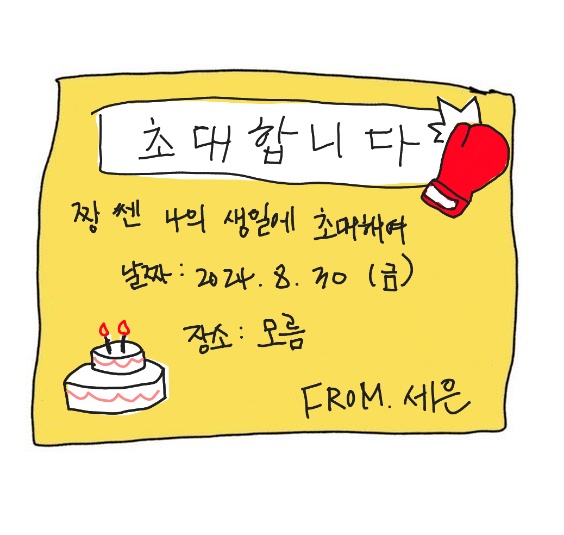 초대합니다
짱 쎈 나의 생일에 초대해여
날짜: 2024. 8. 30 (금)
장소: 모름
FROM. 세은